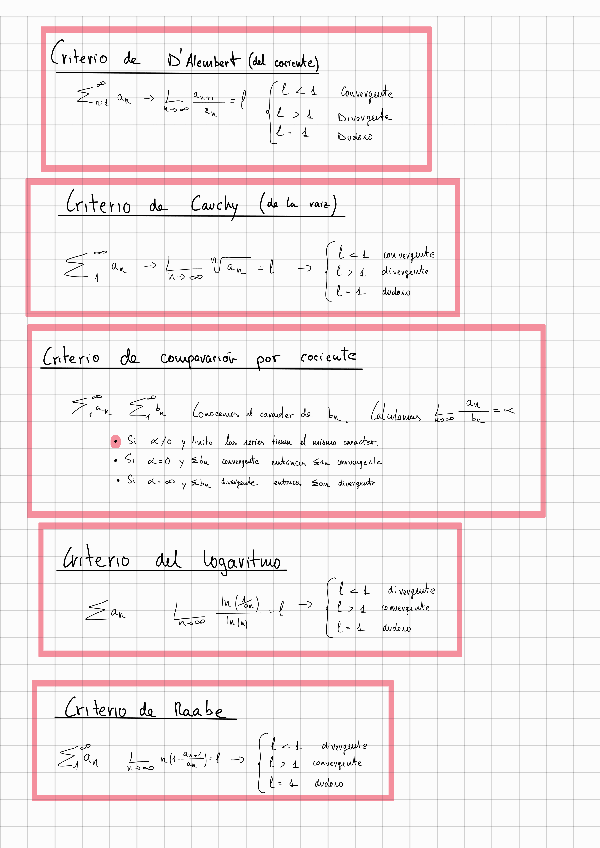 Criterio de D'Alembert (del cociente)
∑_{n=1}^∞ a_n → L_{n→∞} a_{n+1}/a_n = l { l < 1 Convergente
l > 1 Divergente
l = 1 Dudoso
Criterio de Cauchy (de la raiz)
∑_1^∞ a_n → L_{n→∞} ⁿ√a_n = l → { l < 1 convergente
l > 1 divergente
l = 1 dudoso
Criterio de comparación por cociente
∑_1^∞ a_n ∑_1^∞ b_n Conocemos el caracter de b_n. Calculamos L_{n→∞} a_n/b_n = α
• Si α≠0 y finito las series tienen el mismo caracter.
• Si α=0 y ∑b_n convergente entonces ∑a_n convergente
• Si α=∞ y ∑b_n divergente entonces ∑a_n divergente
Criterio del logaritmo
∑ a_n L_{n→∞} ln(1/a_n)/ln(n) = l → { l < 1 divergente
l > 1 convergente
l = 1 dudoso
Criterio de Raabe
∑_1^∞ a_n L_{n→∞} n(1-a_{n+1}/a_n) = l → { l < 1 divergente
l > 1 convergente
l = 1 dudoso